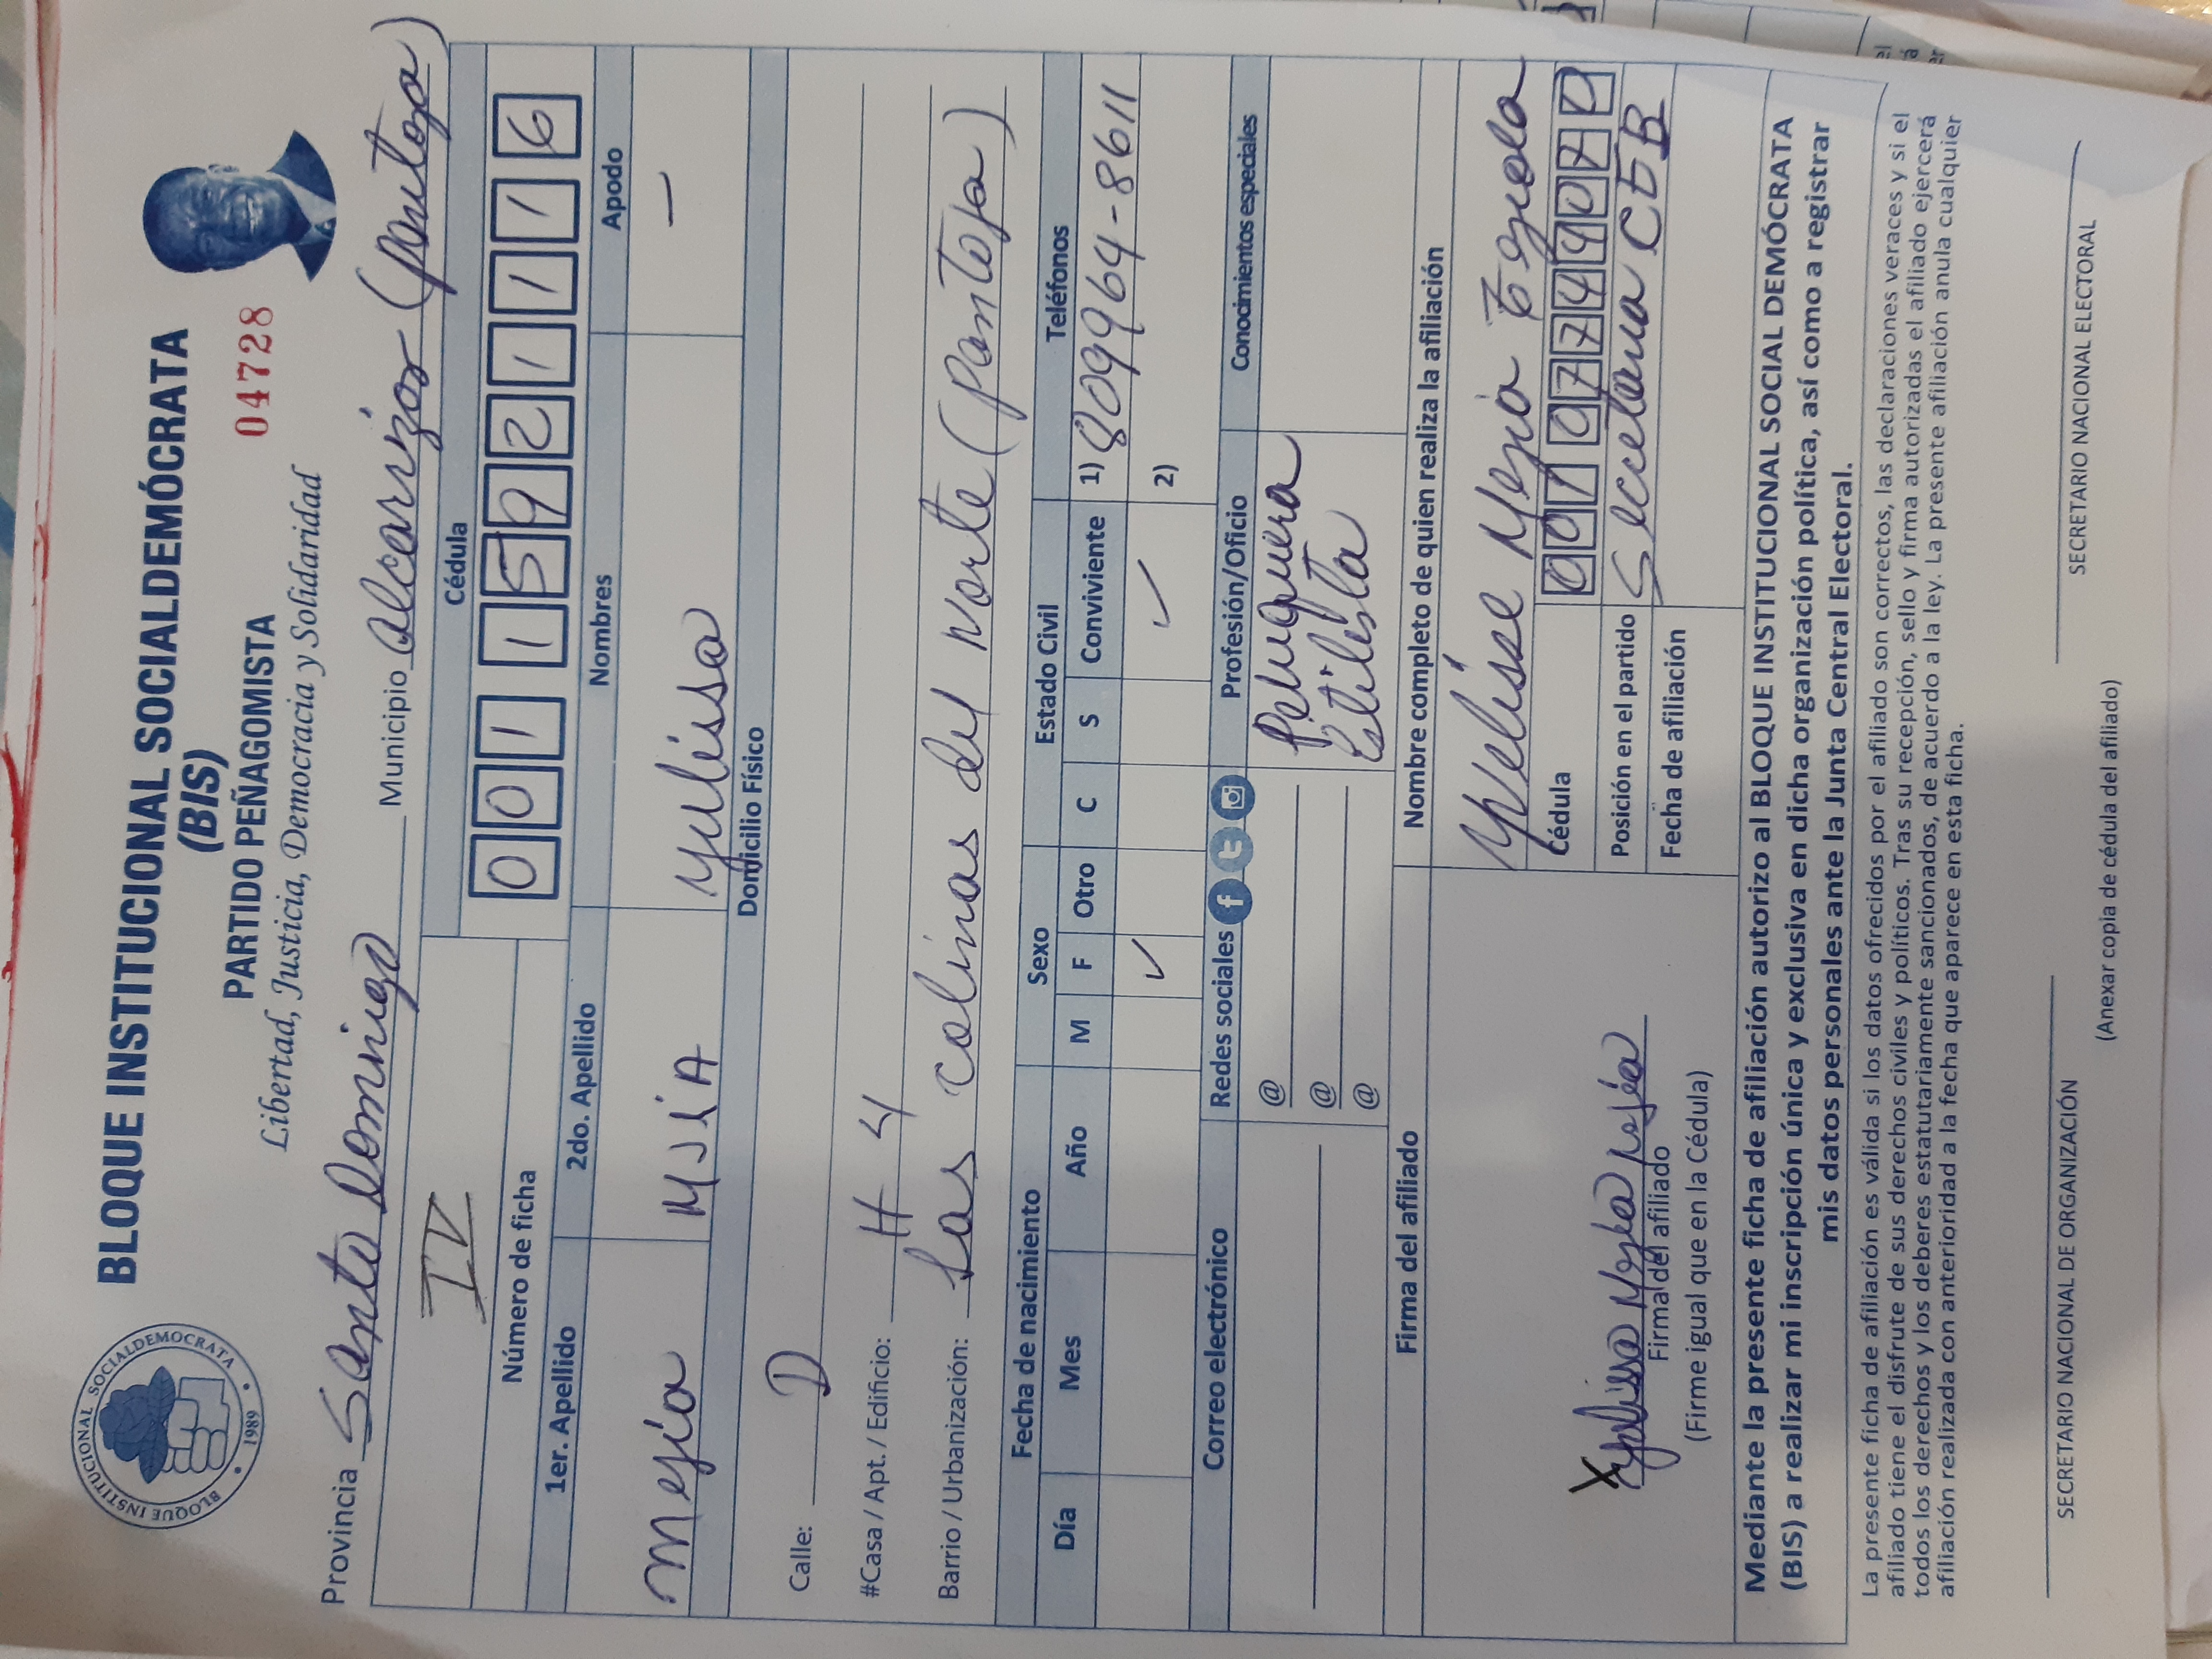 BLOQUE INSTITUCIONAL SOCIALDEMOCRATA 1989
BLOQUE INSTITUCIONAL SOCIALDEMÓCRATA
(BIS)
PARTIDO PEÑAGOMISTA
04728
Libertad, Justicia, Democracia y Solidaridad
Provincia Santo Domingo Municipio Alcarrizos (Pantoja)
IV
Número de ficha
Cédula
0 0 1 1 5 9 2 1 1 1 6
1er. Apellido 2do. Apellido Nombres Apodo
Mejía MJíA Yulissa —
Domicilio Físico
Calle: D
#Casa / Apt. / Edificio: # 4
Barrio / Urbanización: Las Colinas del Norte (Pantoja)
Fecha de nacimiento Sexo Estado Civil Teléfonos
Día Mes Año M F Otro C S Conviviente 1) 809964-8611
✓ ✓ 2)
Correo electrónico Redes sociales Profesión/Oficio Conocimientos especiales
@ Peluquera
@ Estilista
@
Firma del afiliado Nombre completo de quien realiza la afiliación
Mejia
Cédula
Posición en el partido
Fecha de afiliación
X Yulissa Mejia Mejía
Firma del afiliado
(Firme igual que en la Cédula)
Mediante la presente ficha de afiliación autorizo al BLOQUE INSTITUCIONAL SOCIAL DEMÓCRATA
(BIS) a realizar mi inscripción única y exclusiva en dicha organización política, así como a registrar
mis datos personales ante la Junta Central Electoral.
La presente ficha de afiliación es válida si los datos ofrecidos por el afiliado son correctos, las declaraciones veraces y si el
afiliado tiene el disfrute de sus derechos civiles y políticos. Tras su recepción, sello y firma autorizadas el afiliado ejercerá
todos los derechos y los deberes estatutariamente sancionados, de acuerdo a la ley. La presente afiliación anula cualquier
afiliación realizada con anterioridad a la fecha que aparece en esta ficha.
SECRETARIO NACIONAL DE ORGANIZACIÓN SECRETARIO NACIONAL ELECTORAL
(Anexar copia de cédula del afiliado)